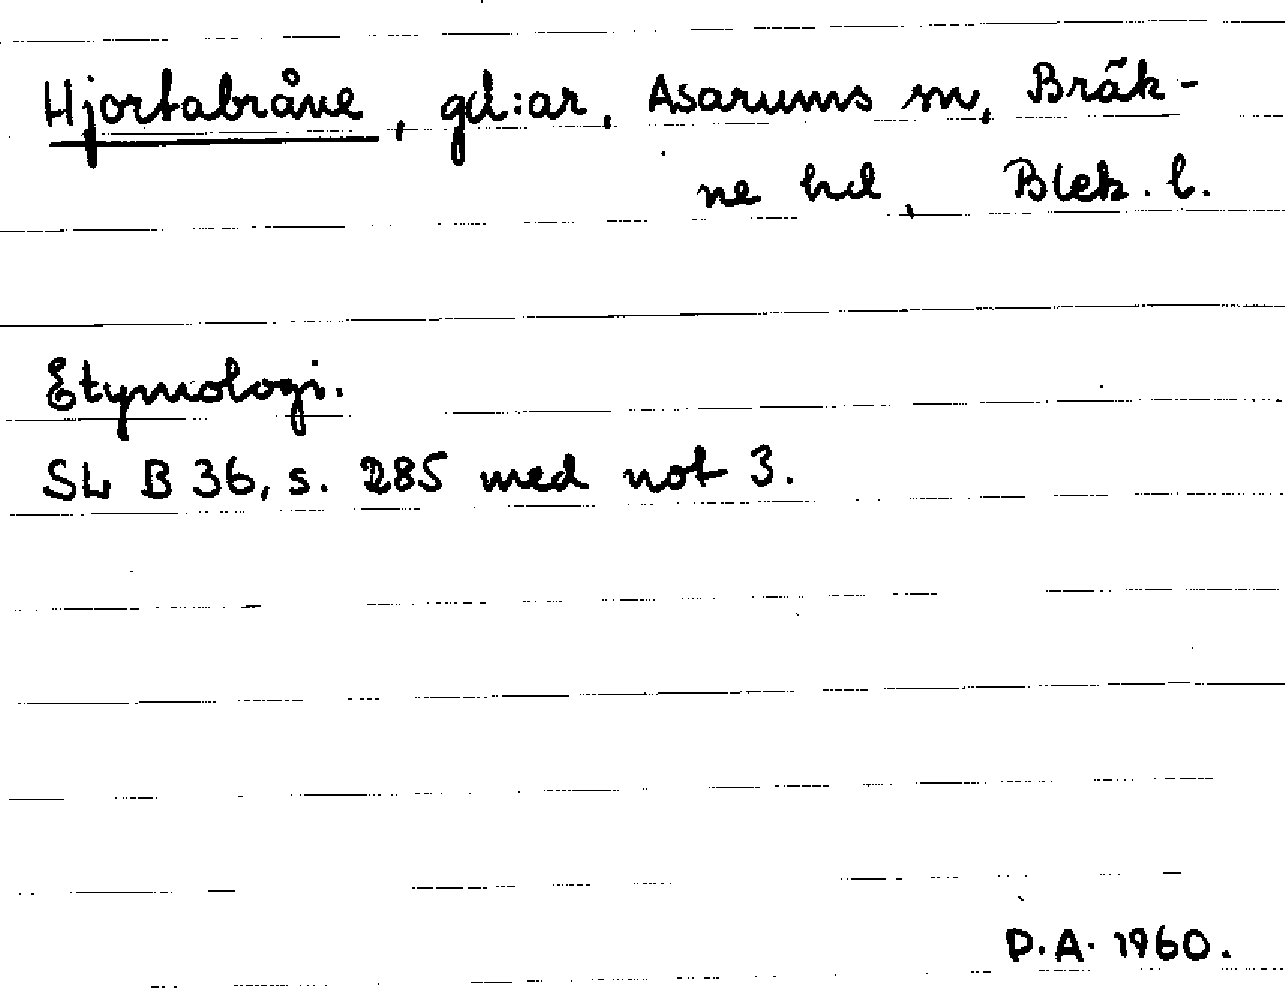 Hjortabråne, gd:ar, Asarums sn, Bräk-
ne hd, Blek. l.
Etymologi.
SL B 36, s. 285 med not 3.
D.A. 1960.